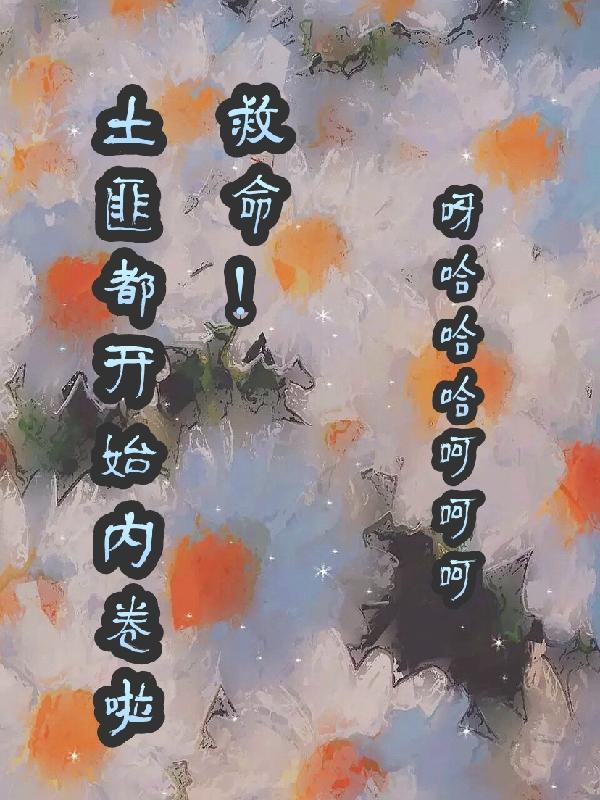 救命！
土匪都开始内卷啦
呀哈哈哈呵呵呵